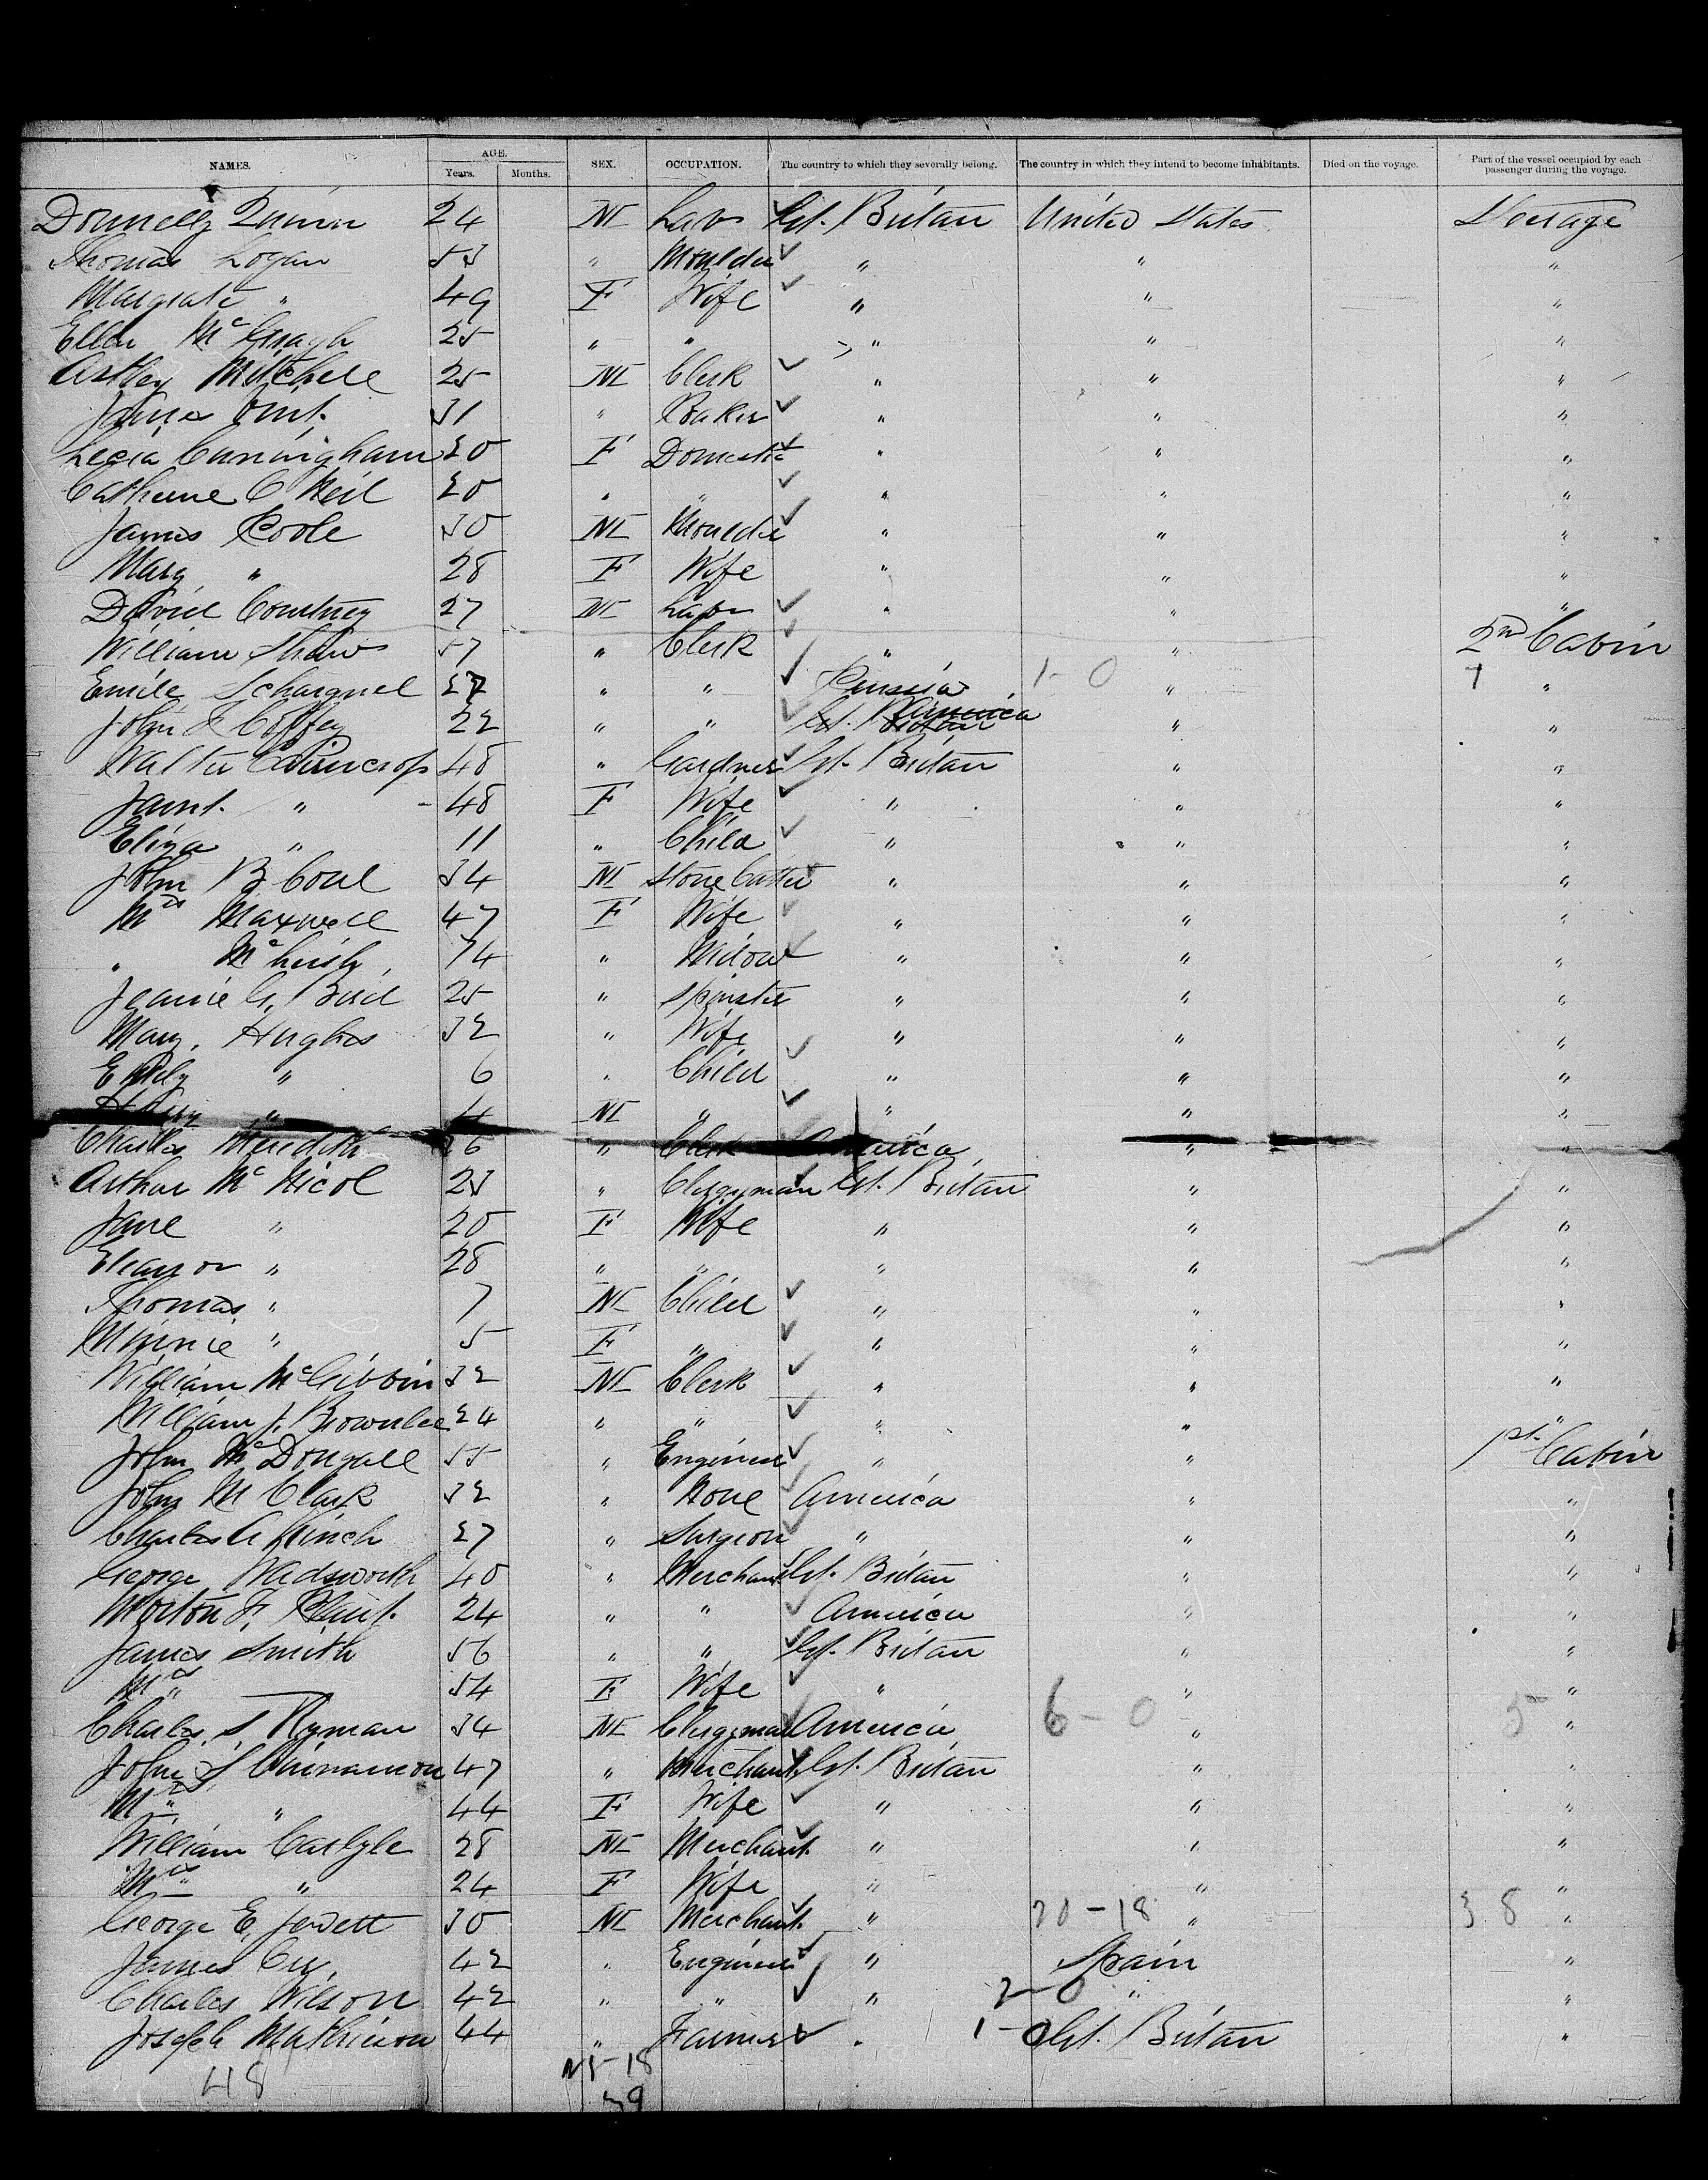 NAMES. AGE. SEX. OCCUPATION. The country to which they severally belong. The country in which they intend to become inhabitants. Died on the voyage. Part of the vessel occupied by each passenger during the voyage.
Years. Months.
Donnelly Quinn 24 M Labr Gt. Britain United States Steerage
Thomas Logan 53 " Moulder " " "
Margrate " 49 F Wife " " "
Ellen McGragh 25 " " " " "
Astley Mitchell 25 M Clerk " " "
James 31 " Baker " " "
Cunningham 20 F Domestic " " "
Catherine O Neil 20 " " " " "
James Poole 30 M Moulder " " "
Mary " 28 F Wife " " "
David Courtney 27 M Labr " " "
William Shaw 57 " Clerk " " 2nd Cabin
Emile 27 " " Russia 1-0 " 1 "
John J Coffey 22 " " Gt. Britain America " "
Walter 48 " Gardner Gt. Britain " "
Janet " 48 F Wife " " "
Eliza " 11 " Child " " "
John B Coul 34 M Stone Cutter " " "
Mrs Maxwell 47 F Wife " " "
" McLeish 74 " Widow " " "
Jeanie G. Bird 25 " Spinster " " "
Mary Hughes 32 " Wife " " "
Emily " 6 " Child " " "
Harry " 4 M " " " "
Charles Meredith 36 " Clerk America " "
Arthur McNicol 23 " Clergyman Gt. Britain " "
Jane " 20 F Wife " " "
Eleanor " 28 " " " " "
Thomas " 7 M Child " " "
Minnie " 5 F " " " "
William McGibbin 32 M Clerk " " "
William J. Brownlee 24 " " " " "
John McDougall 55 " Engineer " " 1st Cabin
John M Clark 32 " None America " "
Charles A Kinch 27 " Surgeon " " "
George Wadsworth 40 " Merchant Gt. Britain " "
Morton F. Plant 24 " " America " "
James Smith 56 " " Gt. Britain " "
Mrs " 54 F Wife " " "
Charles S. Ryman 34 M Clergyman America 6-0 " 5 "
John S Cinnamon 47 " Merchant Gt. Britain " "
Mrs " " 44 F Wife " " "
William Carlyle 28 M Merchant " " "
Mrs " " 24 F Wife " " "
George E. Jewett 30 M Merchant " 20-18 " 38 "
James 42 " Engineer " Spain "
Charles Wilson 42 " " " 2-0 " "
Joseph Mathieson 44 " Farmer " 1-0 Gt. Britain "
48 18
39